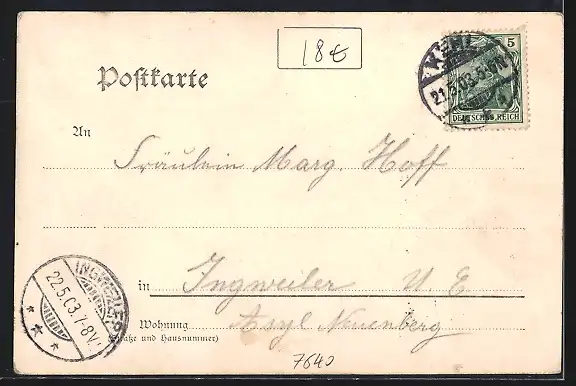 18€
Postkarte
5
KEHL
21.5.03.5-6N.
DEUTSCHES REICH
An
Fräulein Marg. Hoff
in Ingweiler U E
Asyl Neuenberg
Wohnung
(Straße und Hausnummer)
INGWEILER
22.5.03.7-8V.
7640